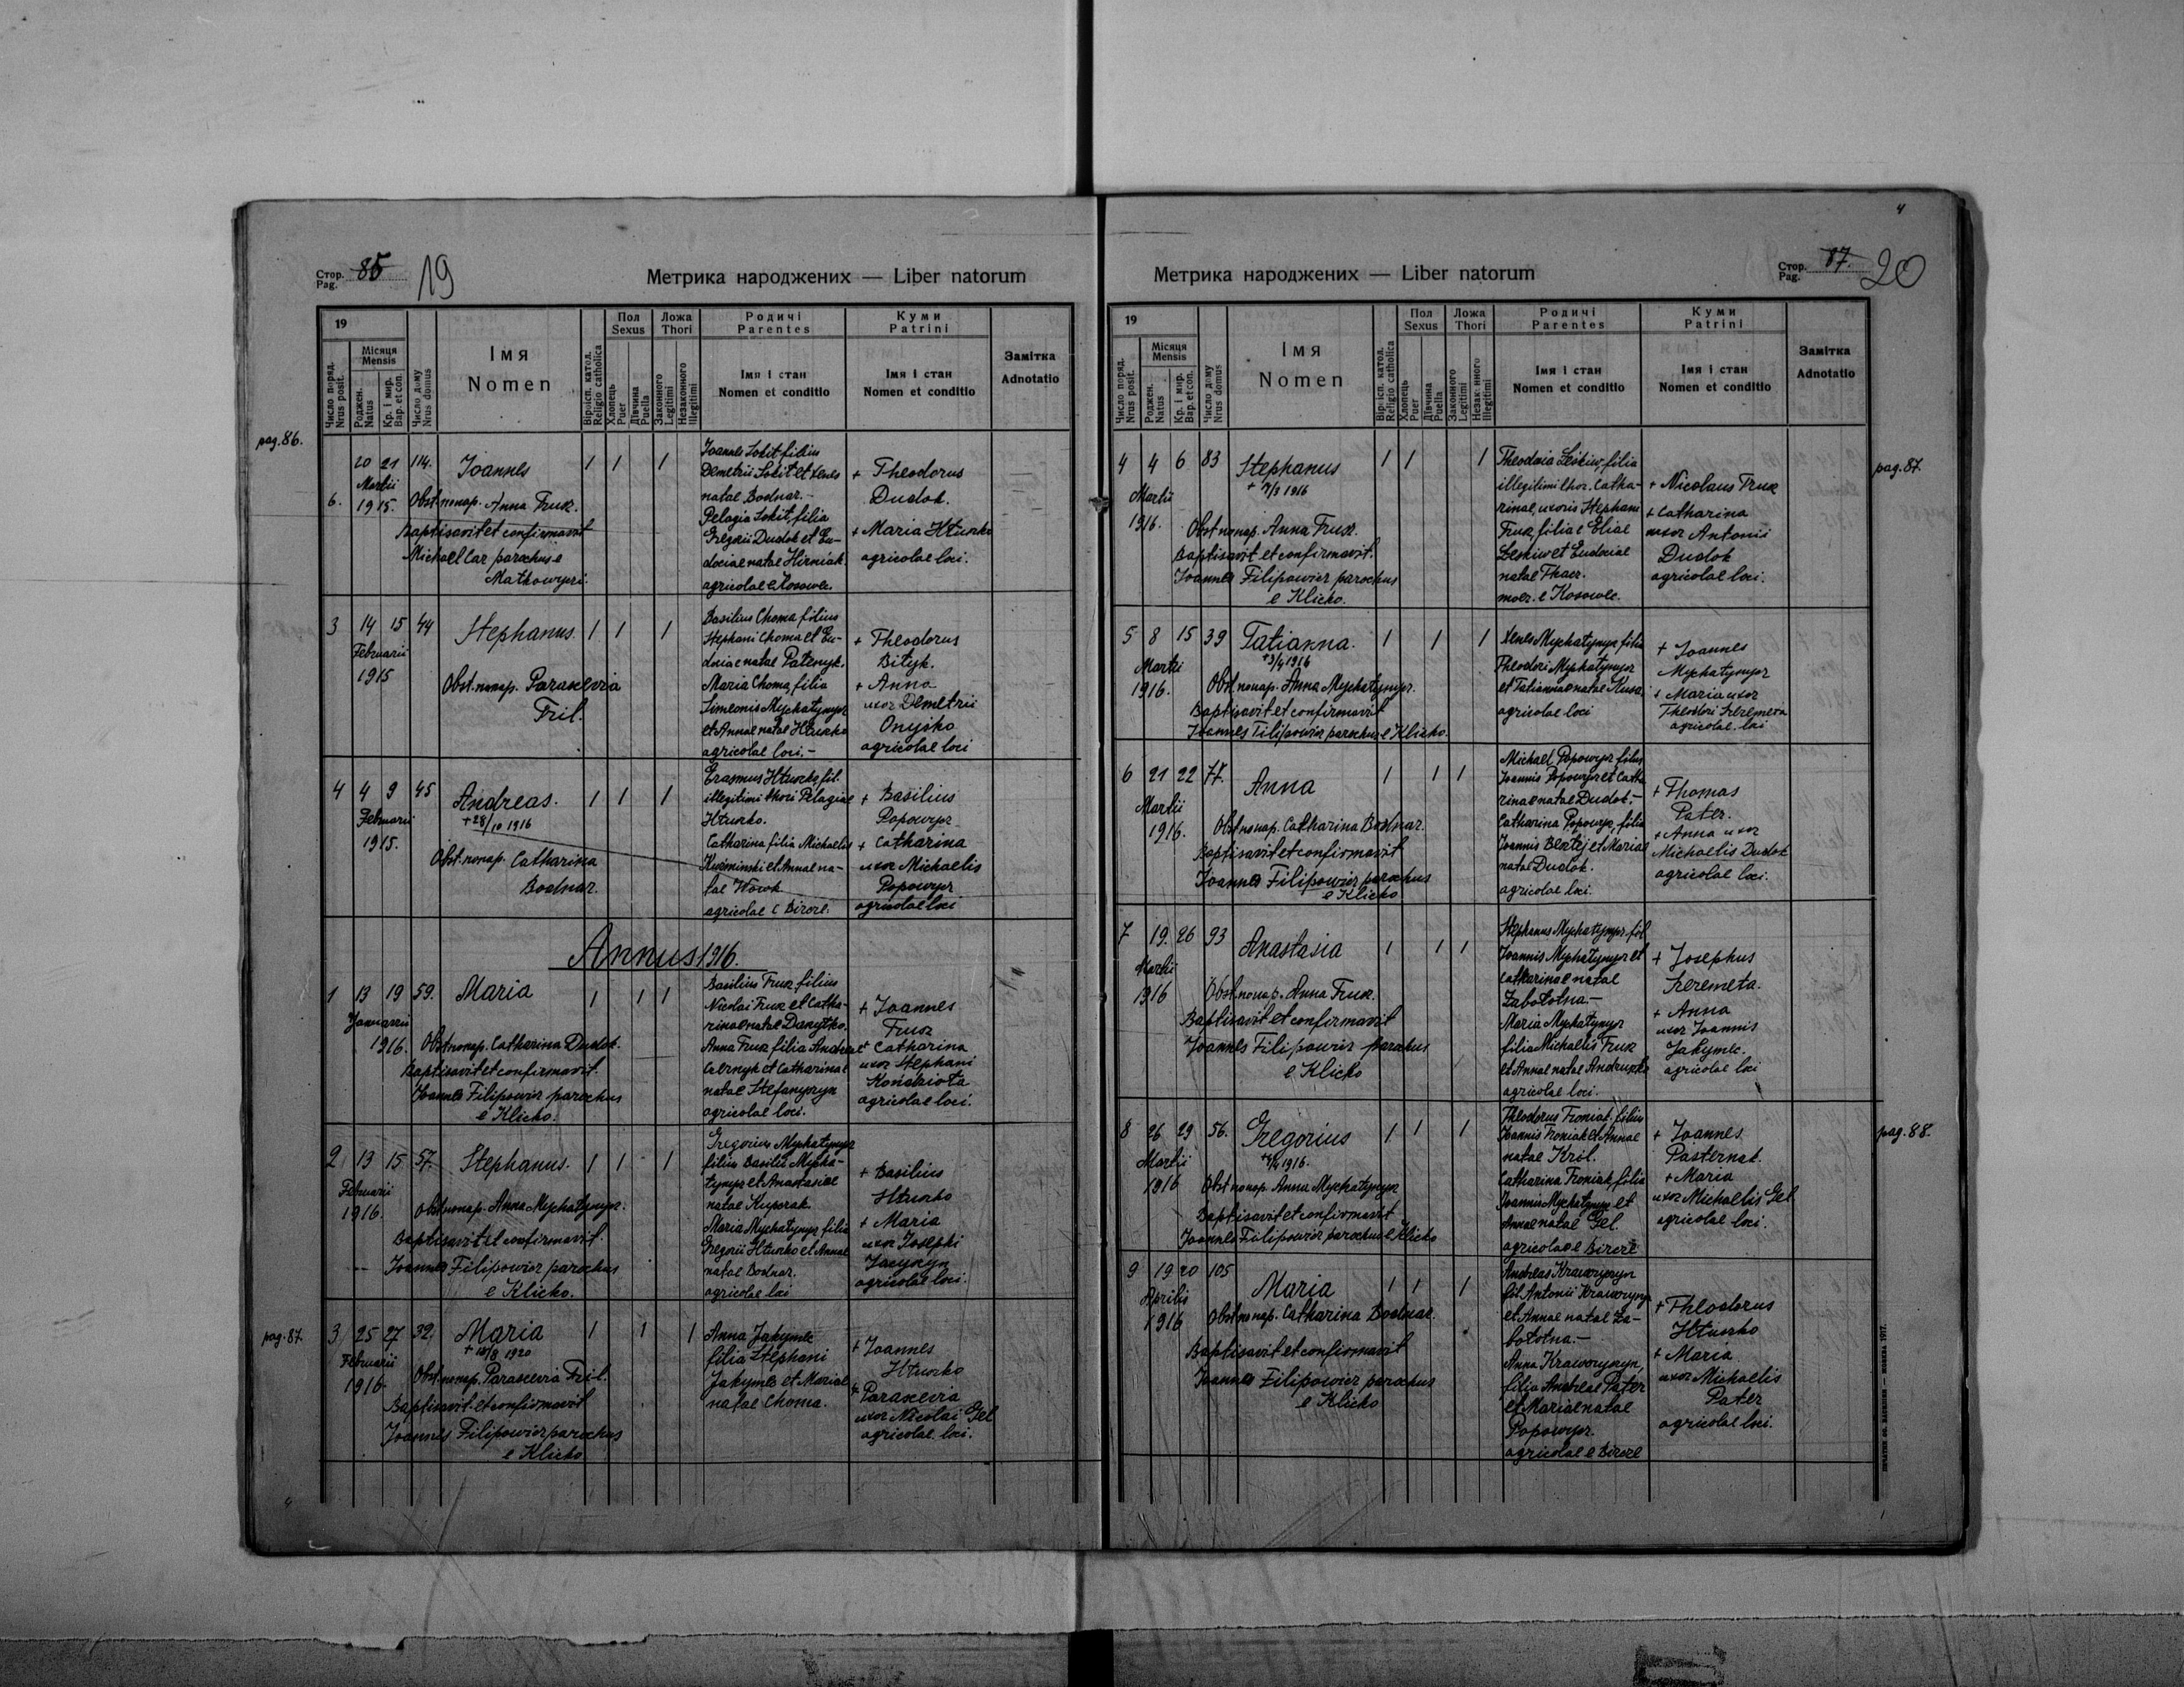 Стор. Pag. 85 19
Метрика народжених — Liber natorum
19
Число поряд. Nrus posit.
Місяця Mensis
Роджен. Natus
Кр. і мир. Bap. et con.
Число дому Nrus domus
Імя Nomen
Віроісп. катол. Religio catholica
Пол Sexus
Хлопець Puer
Дівчина Puella
Ложа Thori
Законного Legitimi
Незаконного Illegitimi
Родичі Parentes
Імя і стан Nomen et conditio
Куми Patrini
Імя і стан Nomen et conditio
Замітка Adnotatio
pag. 86.
6. 20 21 114. Joannes 1 1 1
Martii
1915. Obst. nonap. Anna Fruk.
Baptisavit et confirmavit
Michaël Car parochus e
Joannes Sokit filius
Demetrii Sokit et Xenes
natae Bodnar.-
Pelagia Sokit, filia
Gregorii Dudok et Eu-
dociae natae Hirniak.
agricolae e Kosowec.
+ Theodorus
Dudok.
+ Maria Hturko
agricolae loci.
3 14 15 44 Stephanus. 1 1 1
Februarii
1915
Obst. nonap. Parascevia
Fril.
Basilius Choma, filius
Stephani Choma et Eu-
dociae natae Patenyk.
Maria Choma, filia
Simeonis Mychatynyr
et Annae natae Hturko
agricolae loci.-
+ Theodorus
Bityk.
+ Anna
uxor Demetrii
Onyiko
agricolae loci
4 4 9 45 Andreas. 1 1 1
+28/10 1916
Februarii
1915.
Obst. nonap. Catharina
Bodnar.
Erasmus Hturko, fil.
illegitimi thori Pelagiae
Hturko.
Catharina filia Michaelis
et Annae na-
tae Wowk
agricolae
+ Basilius
Popowyr
+ Catharina
uxor Michaelis
Popowyr
agricolae loci
Annus 1916.
1 13 19 59. Maria 1 1 1
Januarii
1916. Obst. nonap. Catharina Dudok.
Baptisavit et confirmavit.
Joannes Filipowicz parochus
e Klicko.
Basilius Fruk filius
Nicolai Fruk et Catha-
rinae natae Danytko.
Anna Fruk filia Andreae
et Catharinae
natae
agricolae loci.
+ Joannes
Fruk
+ Catharina
uxor Stephani
agricolae loci.
2 13 15 57. Stephanus. 1 1 1
Februarii
1916. Obst. nonap. Anna Mychatynyr.
Baptisavit et confirmavit.
Joannes Filipowicz parochus
e Klicko.
Gregorius Mychatynyr
filius Basilii Mycha-
tynyr et Anastasiae
natae Kuporak.
Maria Mychatynyr, filia
Gregorii Hturko et Annae
natae Bodnar.
agricolae loci
+ Basilius
Hturko
+ Maria
uxor Josephi
agricolae loci.
pag. 87.
3 25 27 32. Maria 1 1 1
+18/8 1920
Februarii
1916. Obst. nonap. Parascevia Fril.
Baptisavit et confirmavit
Joannes Filipowicz parochus
e Klicko
Anna Jakymec
filia Stephani
Jakymec et Mariae
natae Choma.
+ Joannes
Hturko
+ Parascevia
uxor Nicolai Gel
agricolae loci.
4
Метрика народжених — Liber natorum
Стор. Pag. 87. 20
19
Число поряд. Nrus posit.
Місяця Mensis
Роджен. Natus
Кр. і мир. Bap. et con.
Число дому Nrus domus
Імя Nomen
Віроісп. катол. Religio catholica
Пол Sexus
Хлопець Puer
Дівчина Puella
Ложа Thori
Законного Legitimi
Незаконного Illegitimi
Родичі Parentes
Імя і стан Nomen et conditio
Куми Patrini
Імя і стан Nomen et conditio
Замітка Adnotatio
pag. 87.
4 4 6 83 Stephanus 1 1 1
+ 7/3 1916
Martii
1916. Obst. nonap. Anna Fruk.
Baptisavit et confirmavit.
Joannes Filipowicz parochus
e Klicko.
filia
illegitimi thor. Catha-
rinae, uxoris Stephani
Fruk, filiae Eliae
et Eudociae
natae
e Kosowec.
+ Nicolaus Fruk
+ Catharina
uxor Antonii
Dudok
agricolae loci.
5 8 15 39 Tatianna. 1 1 1
+3/4 1916
Martii
1916. Obst. nonap. Anna Mychatynyr.
Baptisavit et confirmavit
Joannes Filipowicz parochus e Klicko.
Xenes Mychatynyr, filia
Theodori Mychatynyr
et Tatiannae natae
agricolae loci
+ Joannes
Mychatynyr
+ Maria uxor
Theodori Szeremeta
agricolae loci
6 21 22 77. Anna 1 1 1
Martii
1916. Obst. nonap. Catharina Bodnar.
Baptisavit et confirmavit
Joannes Filipowicz parochus
e Klicko
Michael Popowyr filius
Joannis Popowyr et Catha-
rinae natae Dudok.-
Catharina Popowyr, filia
Joannis et Mariae
natae Dudok.
agricolae loci.
+ Thomas
Pater.
+ Anna uxor
Michaelis Dudok
agricolae loci.
7 19. 26 93 Anastasia 1 1 1
Martii
1916 Obst. nonap. Anna Fruk.
Baptisavit et confirmavit
Joannes Filipowicz parochus
e Klicko
Stephanus Mychatynyr. fil.
Joannis Mychatynyr et
Catharinae natae
Zabototna.-
Maria Mychatynyr
filia Michaelis Fruk
et Annae natae
agricolae loci.
+ Josephus
Szeremeta.
+ Anna
uxor Joannis
Jakymec.
agricolae loci
pag. 88.
8 26 29 56. Gregorius 1 1 1
1916.
Martii
1916 Obst. nonap. Anna Mychatynyr
Baptisavit et confirmavit
Joannes Filipowicz parochus e Klicko
Theodorus Froniak, filius
Joannis Froniak et Annae
natae Kril.
Catharina Froniak, filia
Joannis Mychatynyr et
Annae natae Gel.
agricolae
+ Joannes
Pasternak.
+ Maria
uxor Michaelis Gel
agricolae loci.
9 19 20 105 Maria 1 1 1
Aprilis
1916 Obst. nonap. Catharina Bodnar.
Baptisavit et confirmavit
Joannes Filipowicz parochus
e Klicko
Andreas
fil. Antonii
et Annae natae Za-
bototna.-
Anna
filia Andreae Pater
et Mariae natae
Popowyr.
agricolae
+ Theodorus
Hturko
+ Maria
uxor Michaelis
Pater
agricolae loci.